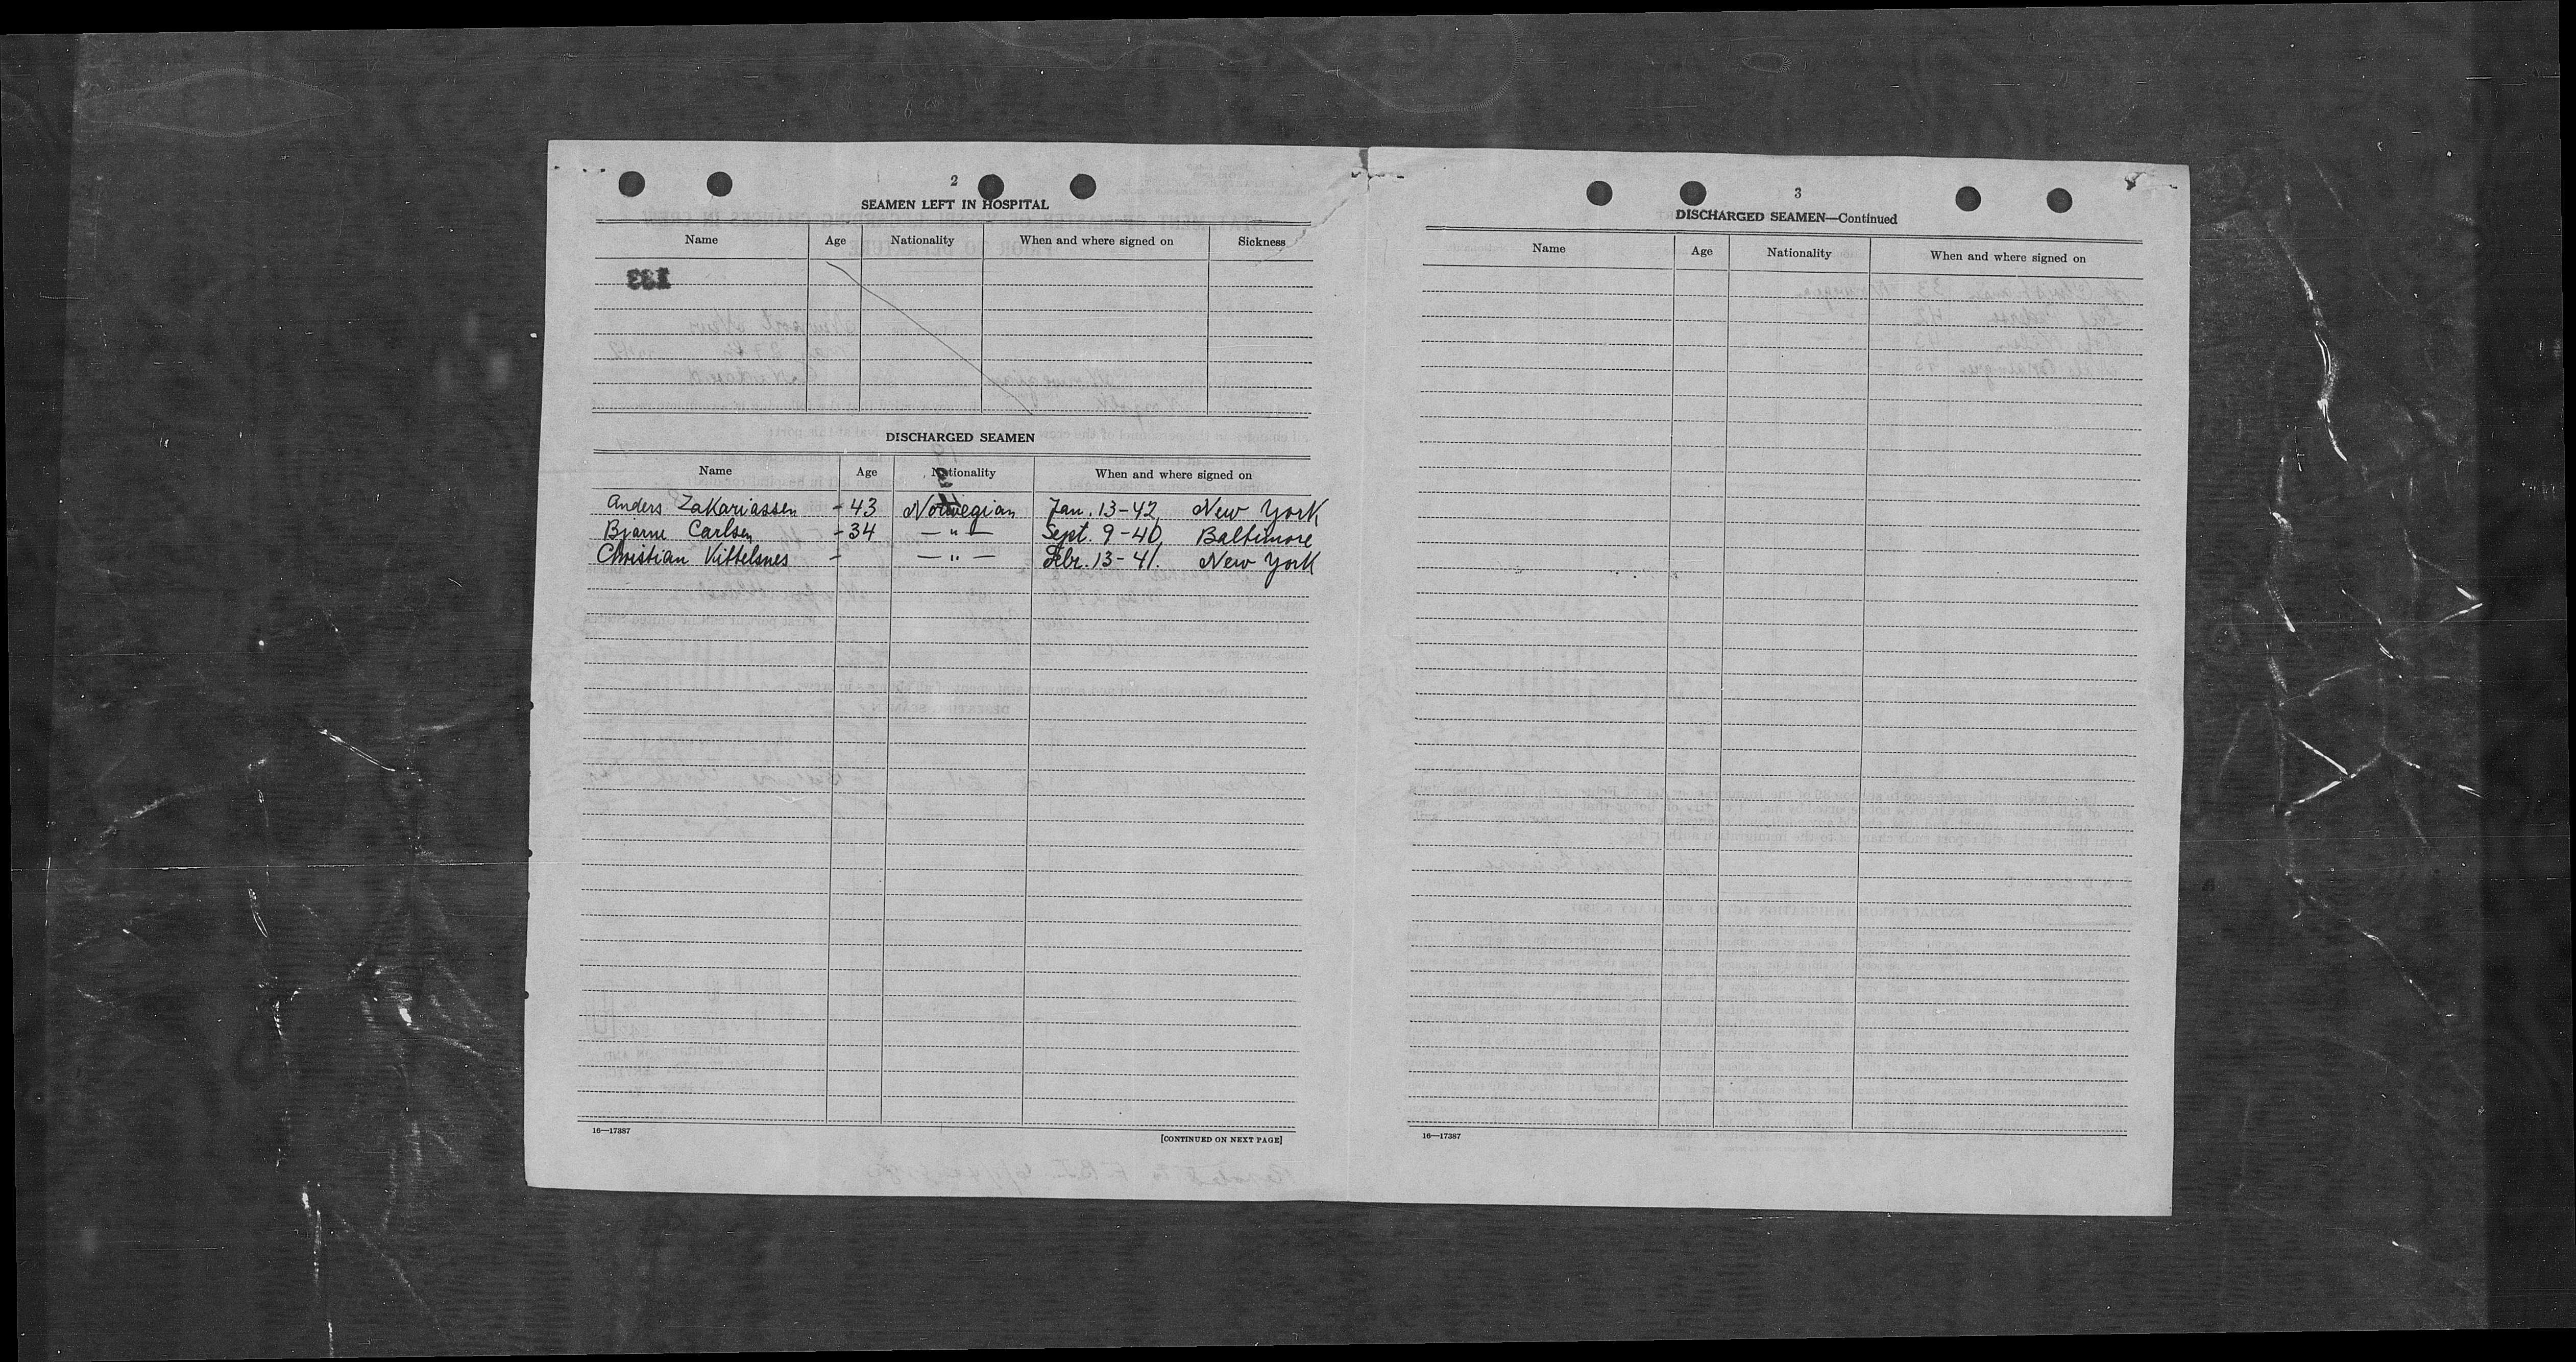 2
SEAMEN LEFT IN HOSPITAL
Name Age Nationality When and where signed on Sickness
133
DISCHARGED SEAMEN
Name Age Nationality When and where signed on
Anders Zakariassen - 43 Norwegian Jan. 13-42, New York
Bjarne Carlsen - 34 — " — Sept. 9-40, Baltimore
Christian Kittelsnes - — " — Febr. 13-41. New York
16—17387 [CONTINUED ON NEXT PAGE]
3
DISCHARGED SEAMEN—Continued
Name Age Nationality When and where signed on
16—17387